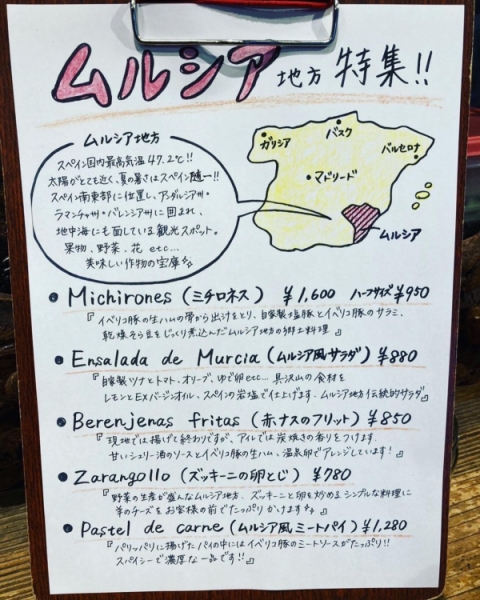 ムルシア 地方 特集!!
ムルシア地方
スペイン国内最高気温47.2℃!!
太陽がとても近く、夏の暑さはスペイン随一!!
スペイン南東部に位置し、アンダルシア州・
ラマンチャ州・バレンシア州に囲まれ、
地中海にも面している観光スポット。
果物、野菜、花 etc...
美味しい作物の宝庫
ガリシア
バスク
バルセロナ
マドリード
ムルシア
Michirones (ミチロネス) ¥1,600 ハーフサイズ¥950
『イベリコ豚の生ハムの骨から出汁をとり、自家製塩豚とイベリコ豚のサラミ、
乾燥そら豆をじっくり煮込んだムルシア地方の郷土料理』
Ensalada de Murcia (ムルシア風サラダ) ¥880
『自家製ツナとトマト、オリーブ、ゆで卵etc... 具沢山の食材を
レモンとEXバージンオイル、スペインの岩塩で仕上げます。ムルシア地方伝統的サラダ』
Berenjenas fritas (赤ナスのフリット) ¥850
『現地では揚げて終わりですが、アイルでは炭焼きの香りをつけます。
甘いシェリー酒のソースとイベリコ豚の生ハム、温泉卵でアレンジしています!』
Zarangollo (ズッキーニの卵とじ) ¥780
『野菜の生産が盛んなムルシア地方。ズッキーニと卵を炒めるシンプルな料理に
羊のチーズをお客様の前でたっぷりかけます』
Pastel de carne (ムルシア風ミートパイ) ¥1,280
『パリッパリに揚げたパイの中にはイベリコ豚のミートソースがたっぷり!!
スパイシーで濃厚な一品です!!』